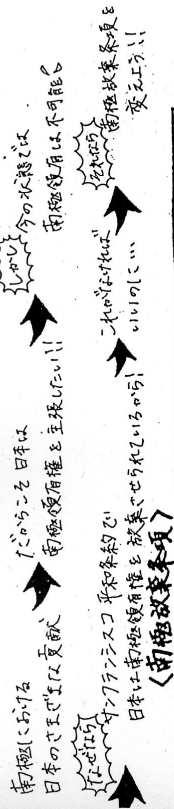 南極における
日本のさまざまな貢献
だからこそ日本は
南極領有権を主張したい!!
しかし
今の状態では
南極領有は不可能
なぜなら
サンフランシスコ平和条約で
日本は南極領有権を放棄させられているから!
〈南極放棄条項〉
これがなければ
いいのに…
それなら
南極放棄条項を
変えよう!!